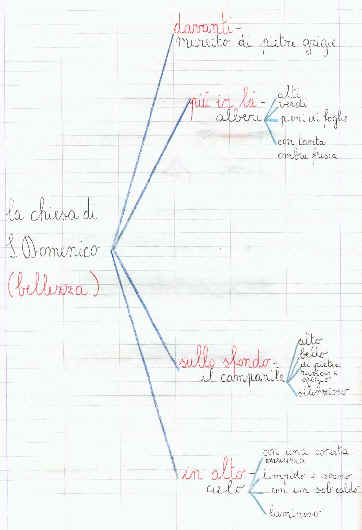 davanti-
muretto di pietre grigie
più in là-
alberi
alti
verdi
pieni di foglie
con tanta
ombra fresca
la chiesa di
S. Domenico
(bellezza)
sullo sfondo-
il campanile
alto
bello
di pietra
grigio
silenzioso
in alto-
cielo
con una
limpido e sereno
con un sole caldo
luminoso